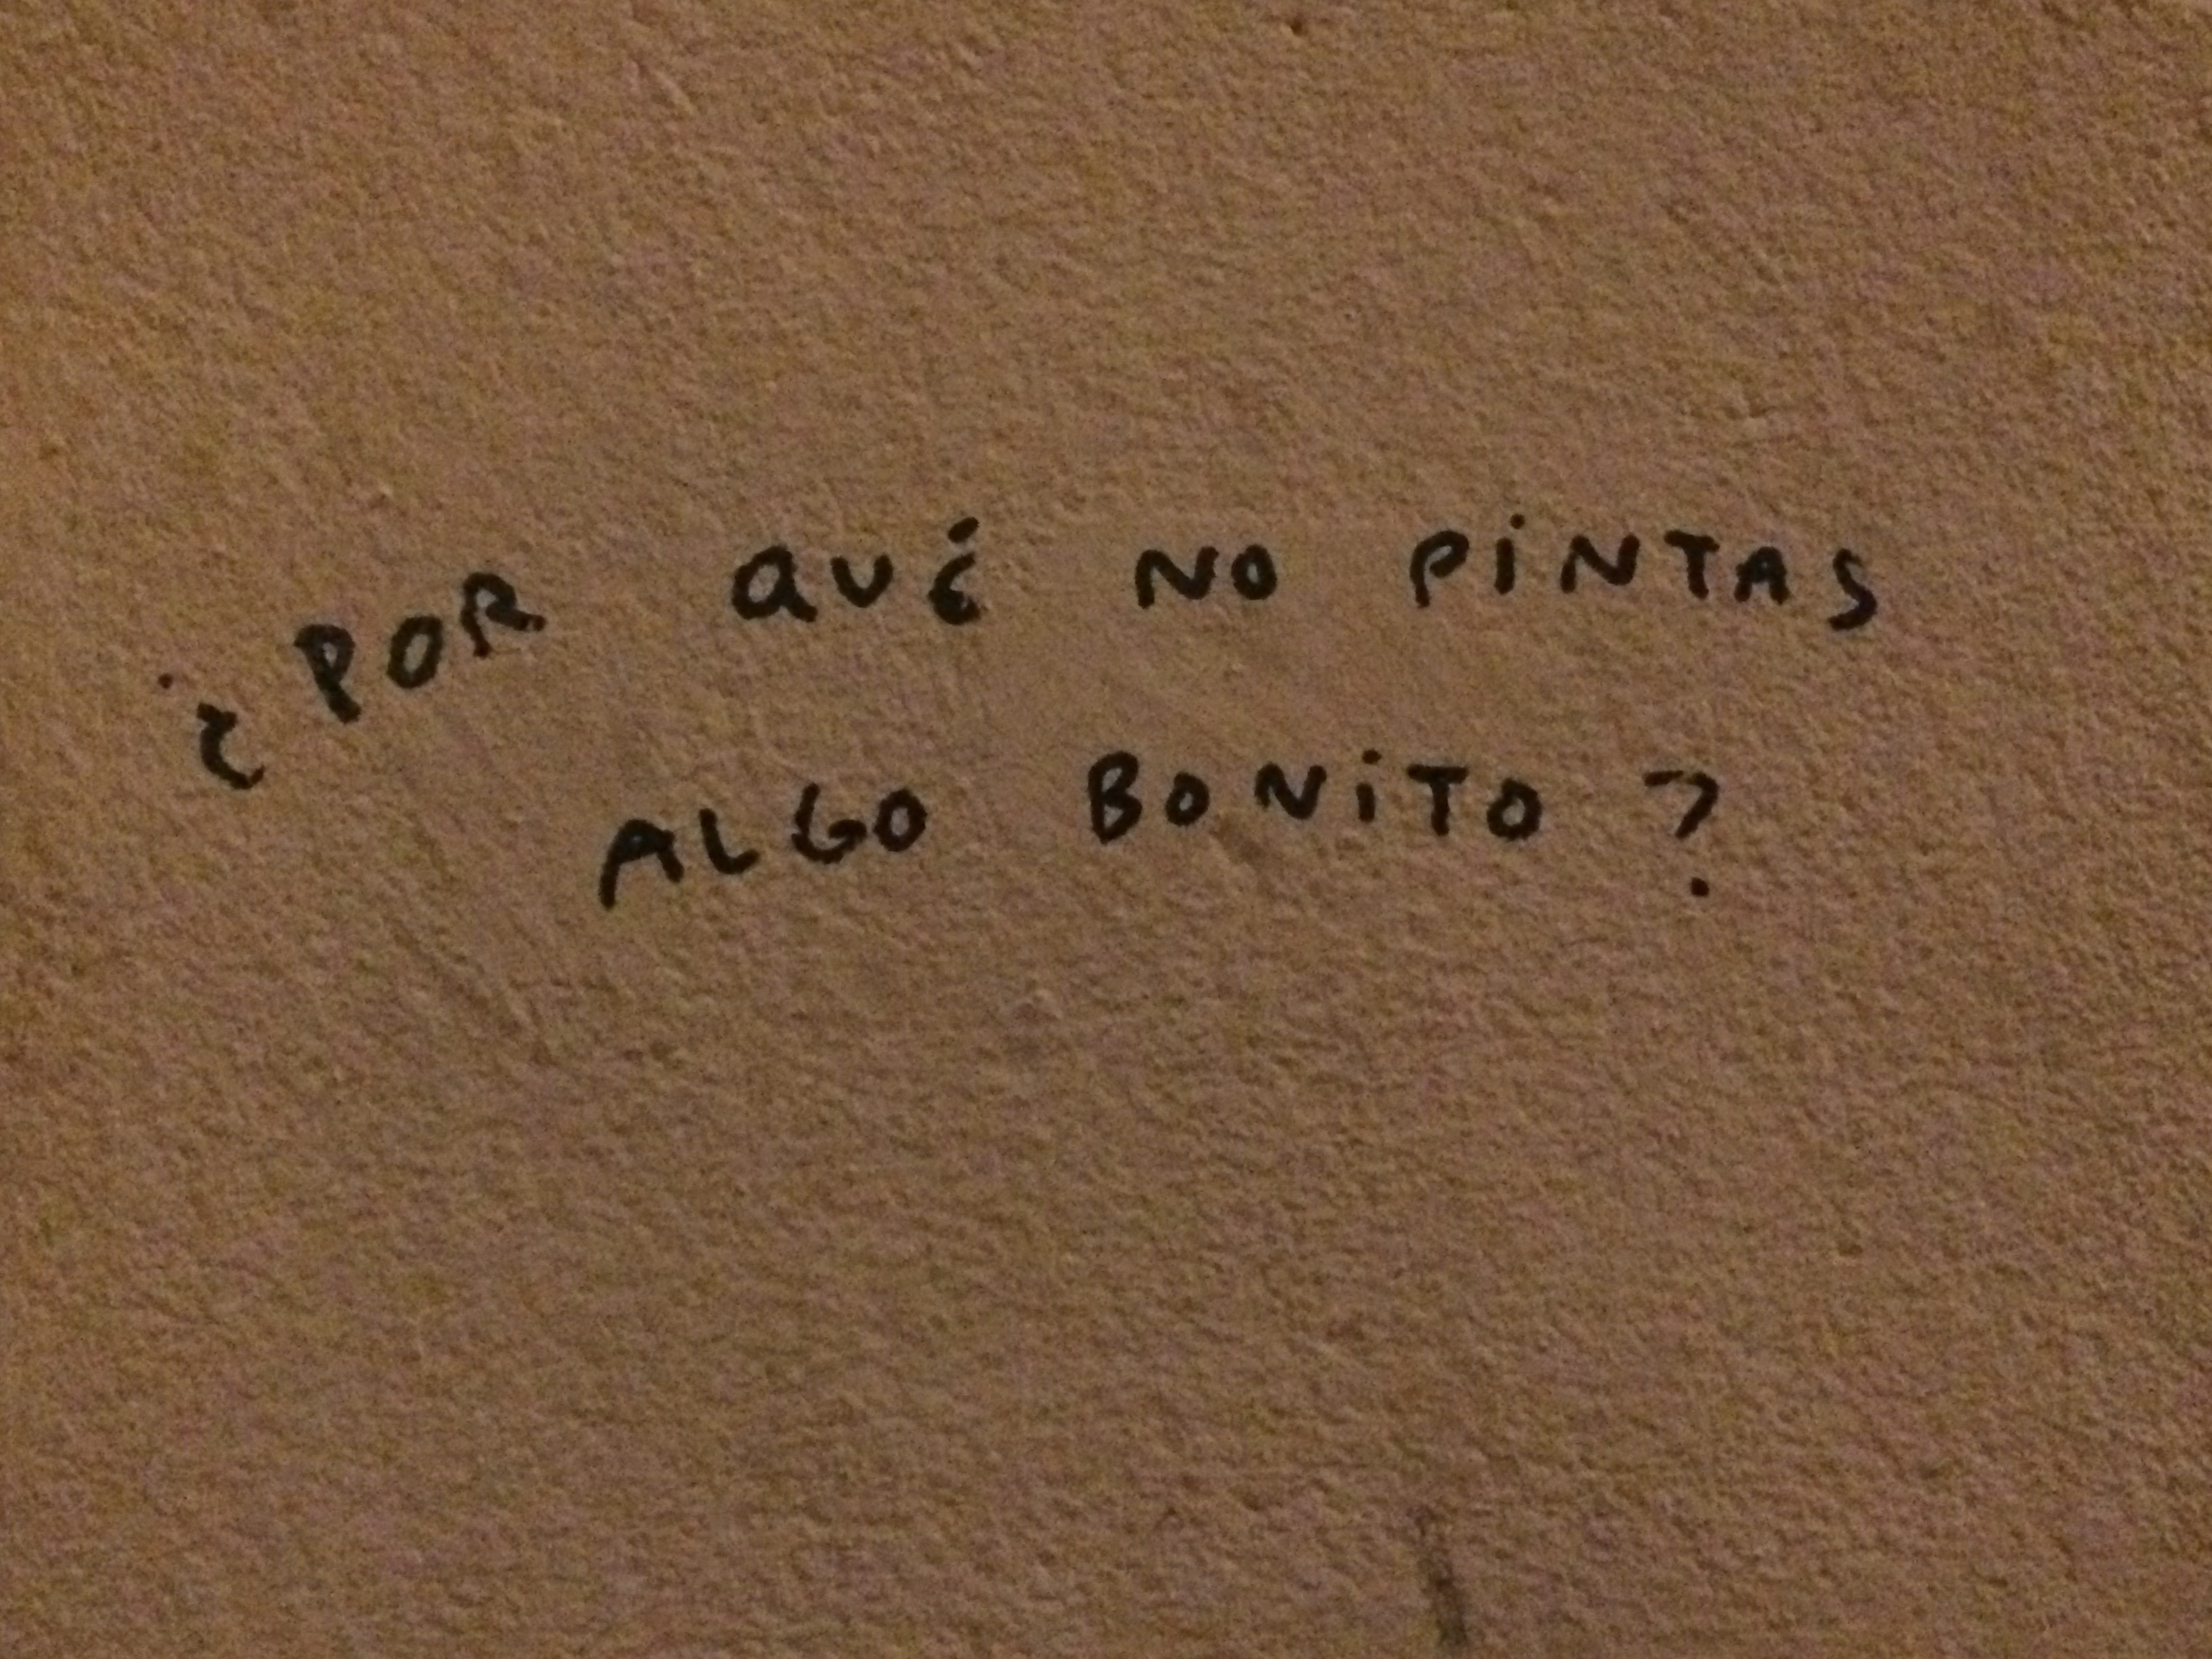 ¿POR QUÉ NO PiNTAS
ALGO BONiTO?